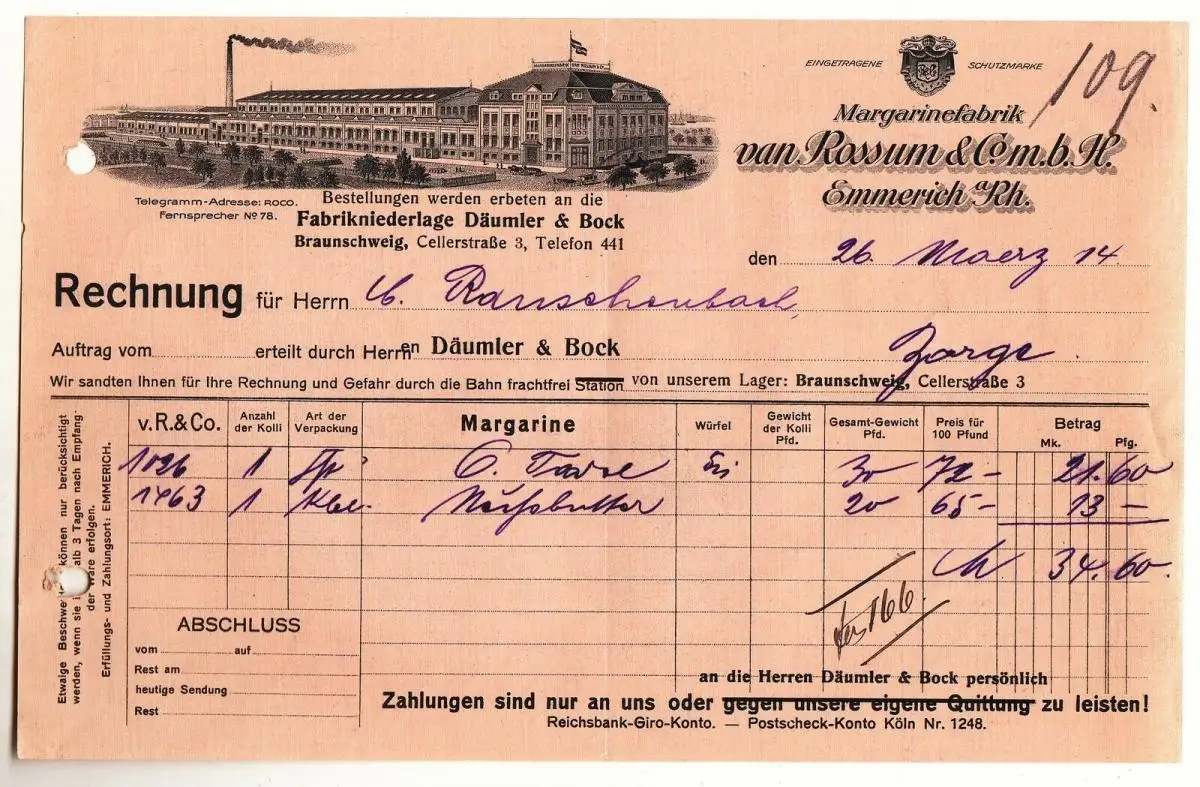 MARGARINEFABRIK VAN ROSSUM & Co
EINGETRAGENE SCHUTZMARKE
109.
Margarinefabrik
van Rossum & Co m.b.H.
Emmerich Rh.
Telegramm-Adresse: ROCO.
Fernsprecher No 78.
Bestellungen werden erbeten an die
Fabrikniederlage Däumler & Bock
Braunschweig, Cellerstraße 3, Telefon 441
den 26. Maerz 14.
Rechnung für Herrn C. Rauschenbach,
Auftrag vom erteilt durch Herrn en Däumler & Bock Zorge.
Wir sandten Ihnen für Ihre Rechnung und Gefahr durch die Bahn frachtfrei Station von unserem Lager: Braunschweig, Cellerstraße 3
v.R.&Co. Anzahl der Kolli Art der Verpackung Margarine Würfel Gewicht der Kolli Pfd. Gesamt-Gewicht Pfd. Preis für 100 Pfund Betrag Mk. Pfg.
1026 1 30 72 - 21.60
1463 1 20 65 - 13 -
34.60.
166.
Etwaige Beschwer können nur berücksichtigt
werden, wenn sie alb 3 Tagen nach Empfang
der Ware erfolgen.
Erfüllungs- und Zahlungsort: EMMERICH.
ABSCHLUSS
vom auf
Rest am
heutige Sendung
Rest
an die Herren Däumler & Bock persönlich
Zahlungen sind nur an uns oder gegen unsere eigene Quittung zu leisten!
Reichsbank-Giro-Konto. — Postscheck-Konto Köln Nr. 1248.